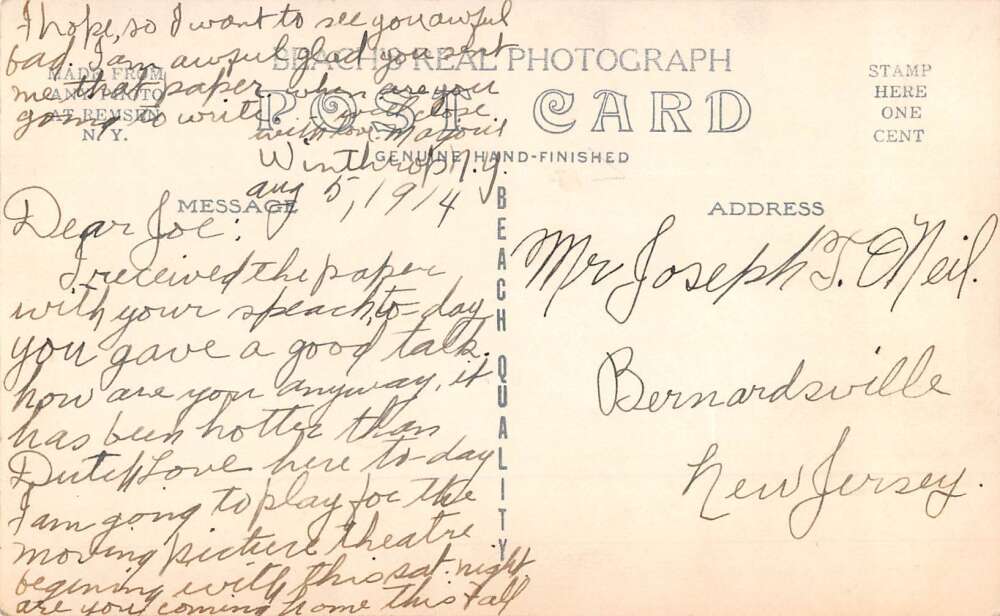 BEACH'S REAL PHOTOGRAPH
POST CARD
GENUINE HAND-FINISHED
MADE FROM
ANY PHOTO
AT REMSEN
N.Y.
STAMP
HERE
ONE
CENT
MESSAGE
ADDRESS
BEACH QUALITY
Winthrop N.Y.
Aug 5, 1914
Dear Joe:
I received the paper
with your speach, to-day
you gave a good talk.
how are you anyway, it
has been hotter than
Dutch Love here to-day
I am going to play for the
moving picture theatre
begining with this sat. night
are you coming home this Fall
I hope, so I want to see you awful
bad. I am awful glad you sent
me that paper. when are you
going to write. will close
with love
Mr Joseph T. O'Neil.
Bernardsville
New Jersey.